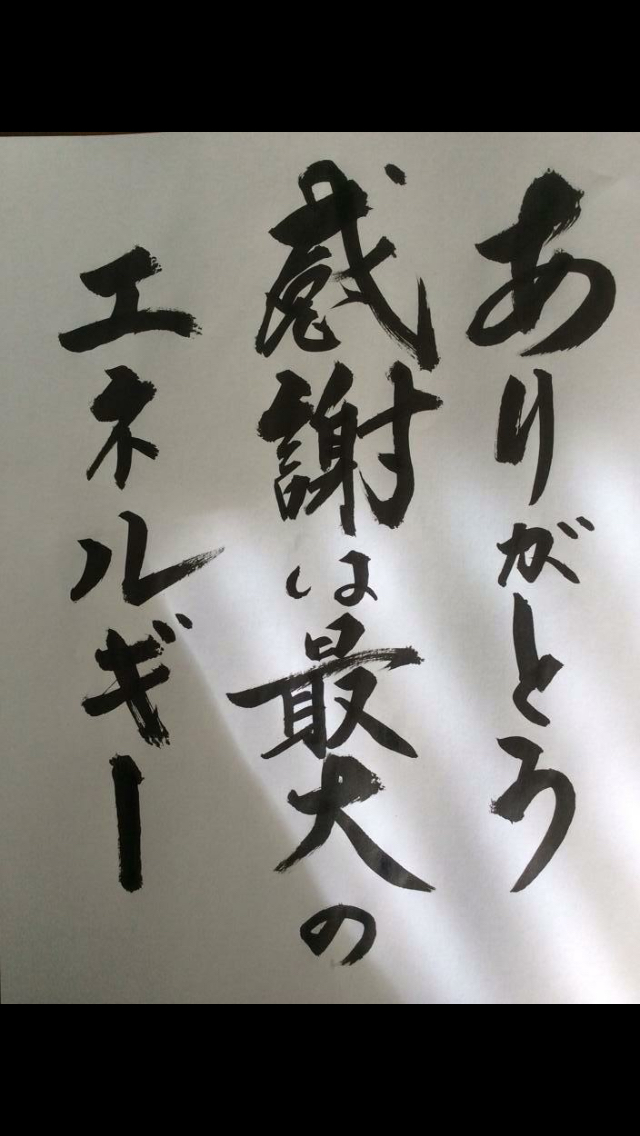 ありがとう
感謝は最大の
エネルギー